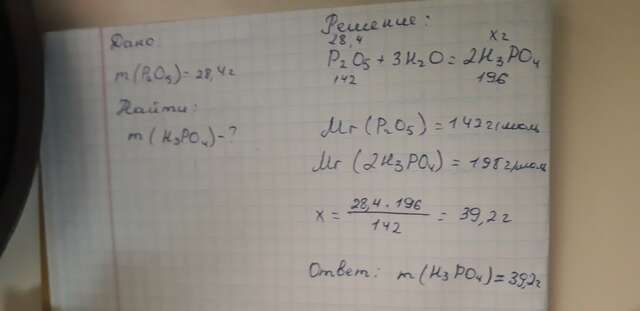 Дано
m(P₂O₅)=28,4г
Найти:
m(H₃PO₄)-?
Решение:
28,4 xг
P₂O₅+3H₂O=2H₃PO₄
142 196
Mr(P₂O₅)=142г/моль
Mr(2H₃PO₄)=198г/моль
x = 28,4·196 / 142 = 39,2г
Ответ: m(H₃PO₄)=39,2г